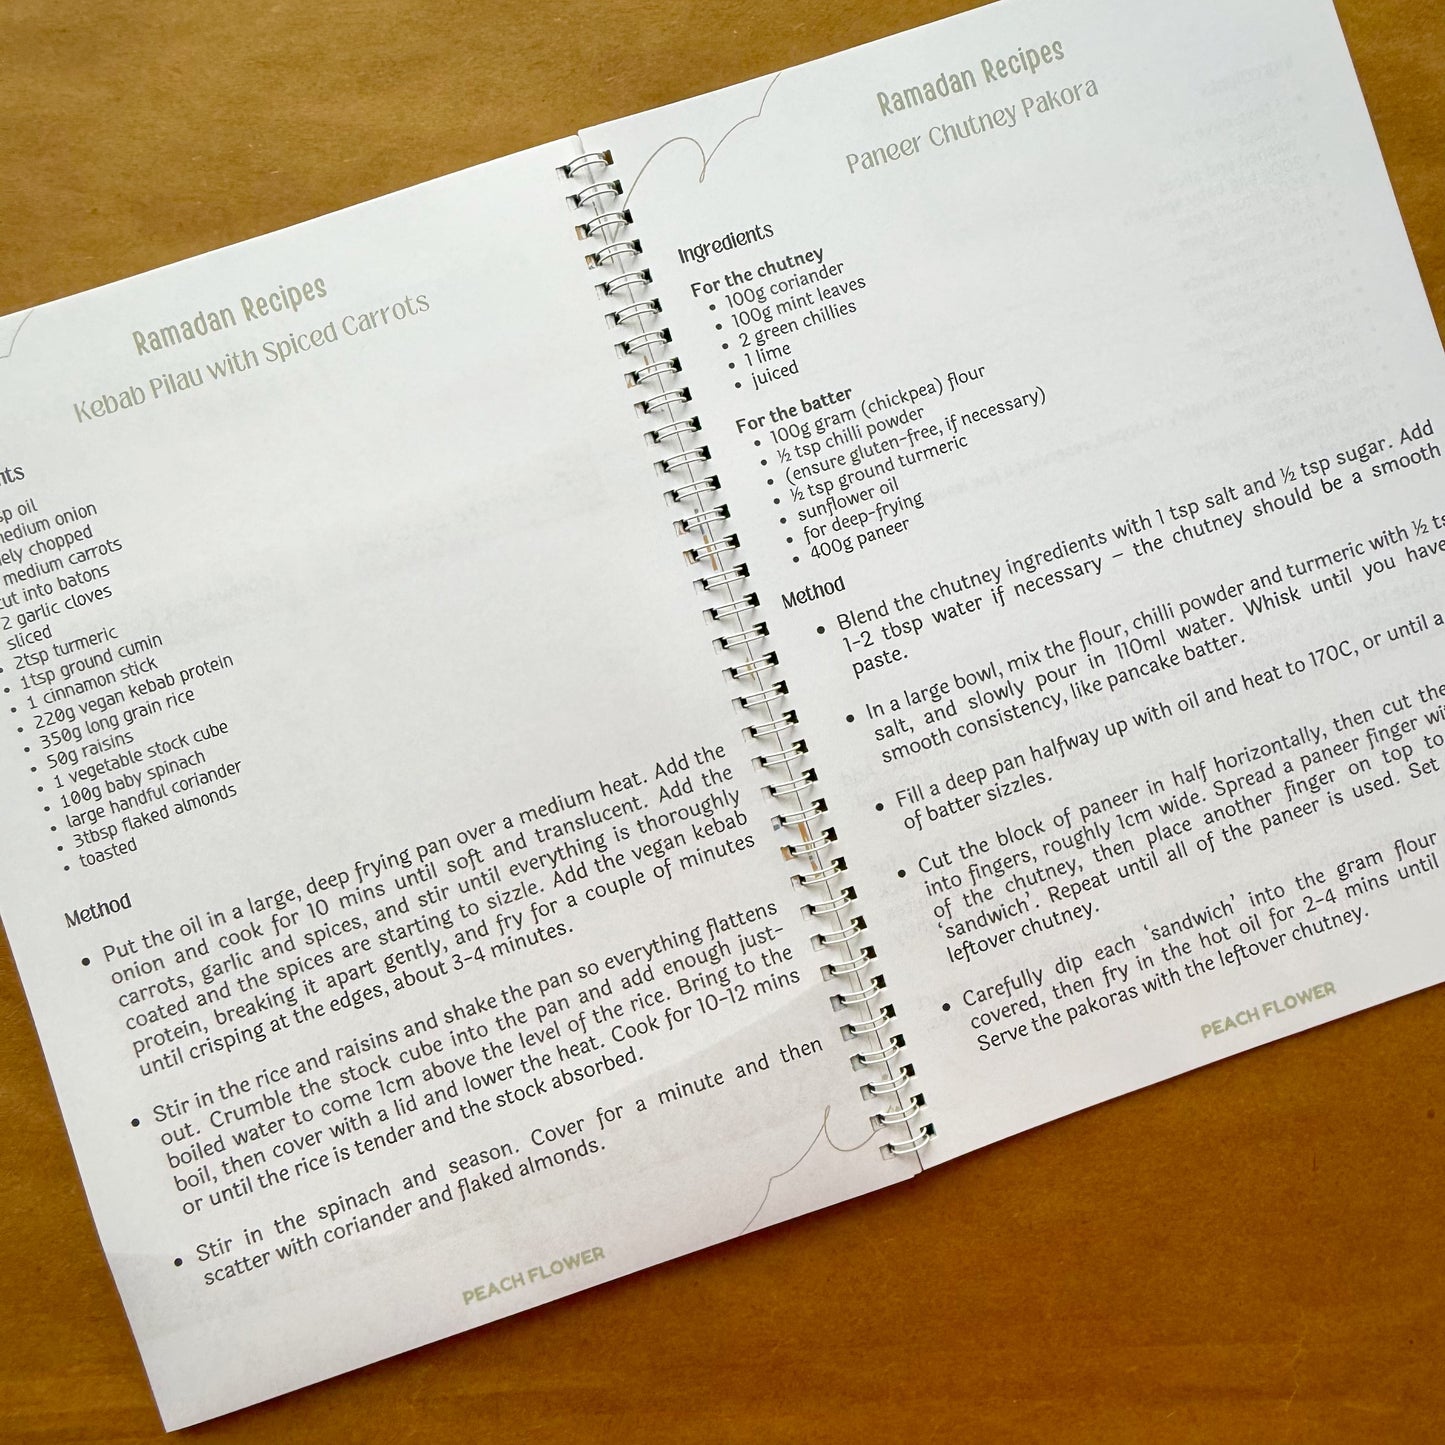 Ramadan Recipes
Kebab Pilau with Spiced Carrots
oil
medium onion
chopped
medium carrots
cut into batons
2 garlic cloves
sliced
2tsp turmeric
1tsp ground cumin
1 cinnamon stick
220g vegan kebab protein
350g long grain rice
50g raisins
1 vegetable stock cube
100g baby spinach
large handful coriander
3tbsp flaked almonds
toasted
Method
Put the oil in a large, deep frying pan over a medium heat. Add the
onion and cook for 10 mins until soft and translucent. Add the
carrots, garlic and spices, and stir until everything is thoroughly
coated and the spices are starting to sizzle. Add the vegan kebab
protein, breaking it apart gently, and fry for a couple of minutes
until crisping at the edges, about 3-4 minutes.
Stir in the rice and raisins and shake the pan so everything flattens
out. Crumble the stock cube into the pan and add enough just-
boiled water to come 1cm above the level of the rice. Bring to the
boil, then cover with a lid and lower the heat. Cook for 10-12 mins
or until the rice is tender and the stock absorbed.
Stir in the spinach and season. Cover for a minute and then
scatter with coriander and flaked almonds.
PEACH FLOWER
Ramadan Recipes
Paneer Chutney Pakora
Ingredients
For the chutney
100g coriander
100g mint leaves
2 green chillies
1 lime
juiced
For the batter
100g gram (chickpea) flour
½ tsp chilli powder
(ensure gluten-free, if necessary)
½ tsp ground turmeric
sunflower oil
for deep-frying
400g paneer
Method
Blend the chutney ingredients with 1 tsp salt and ½ tsp sugar. Add
1-2 tbsp water if necessary – the chutney should be a smooth
paste.
In a large bowl, mix the flour, chilli powder and turmeric with ½
salt, and slowly pour in 110ml water. Whisk until you have
smooth consistency, like pancake batter.
Fill a deep pan halfway up with oil and heat to 170C, or until a
of batter sizzles.
Cut the block of paneer in half horizontally, then cut the
into fingers, roughly 1cm wide. Spread a paneer finger
of the chutney, then place another finger on top to
‘sandwich’. Repeat until all of the paneer is used. Set
leftover chutney.
Carefully dip each ‘sandwich’ into the gram flour
covered, then fry in the hot oil for 2-4 mins until
Serve the pakoras with the leftover chutney.
PEACH FLOWER